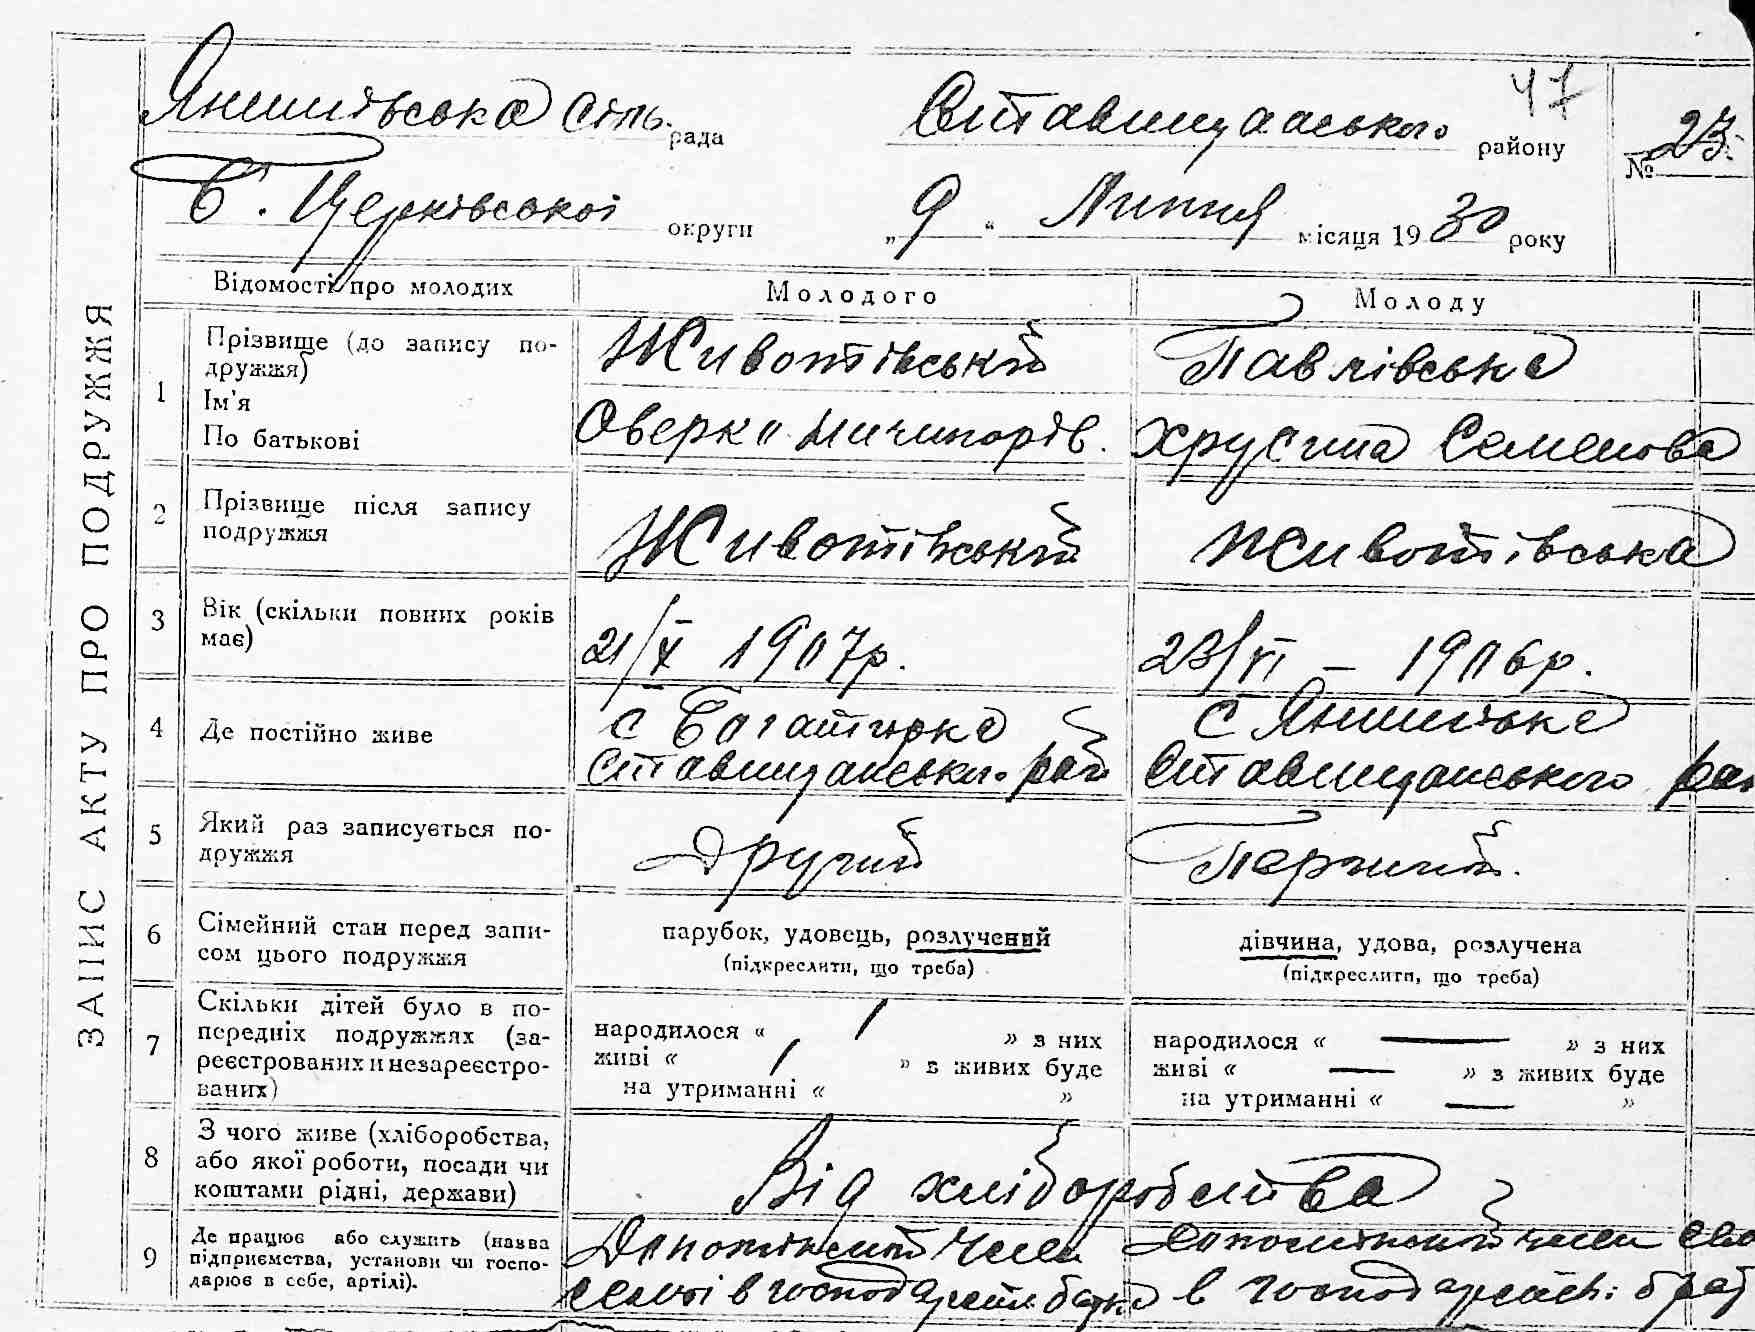 47
Янишівська сіль. рада Ставищанського району № 23.
Б. Церківської округи „ 9 “ Липня місяця 19 30 року
ЗАПИС АКТУ ПРО ПОДРУЖЖЯ
Відомості про молодих Молодого Молоду
1 Прізвище (до запису по-
дружжя)
Ім'я
По батькові
Животівський Павлівська
Оверко Ничипорів. Хрусина Семенова
2 Прізвище після запису
подружжя
Животівський Животівська
3 Вік (скільки повних років
має)
21/X 1907р. 23/VI – 1906р.
4 Де постійно живе
с Богатирка с Янишівка
Ставищансько. рай Ставищанського рай
5 Який раз записується по-
дружжя
Другий Перший.
6 Сімейний стан перед запи-
сом цього подружжя
парубок, удовець, розлучений дівчина, удова, розлучена
(підкреслити, що треба) (підкреслити, що треба)
7 Скільки дітей було в по-
передніх подружжях (за-
реєстрованих и незареєстро-
ваних)
народилося „ / ” з них народилося „ — ” з них
живі „ / ” з живих буде живі „ — ” з живих буде
на утриманні „ ” на утриманні „ — ”
8 З чого живе (хліборобства,
або якої роботи, посади чи
коштами рідні, держави)
Від хліборобства
9 Де працює або служить (назва
підприємства, установи чи госпо-
дарює в себе, артілі).
Допоміжний член Допоміжний член
сем'ї в господарстві батька в господарстві брат